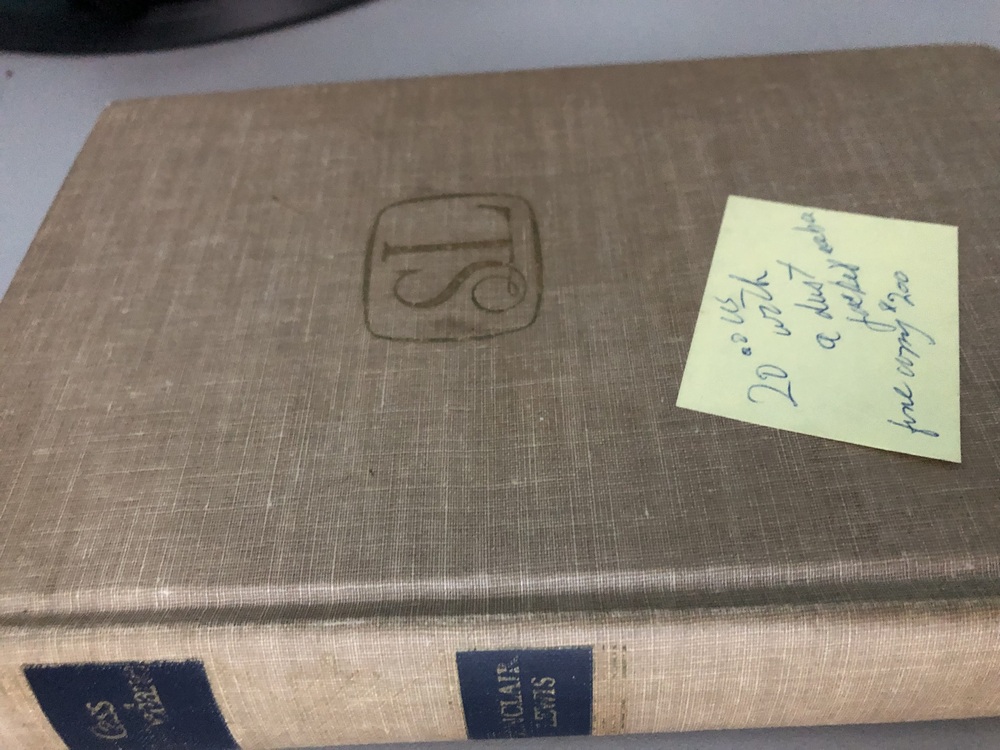 SL
20 00 US
with
a dust
jacket
fine copy $200
SINCLAIR
LEWIS
Cass